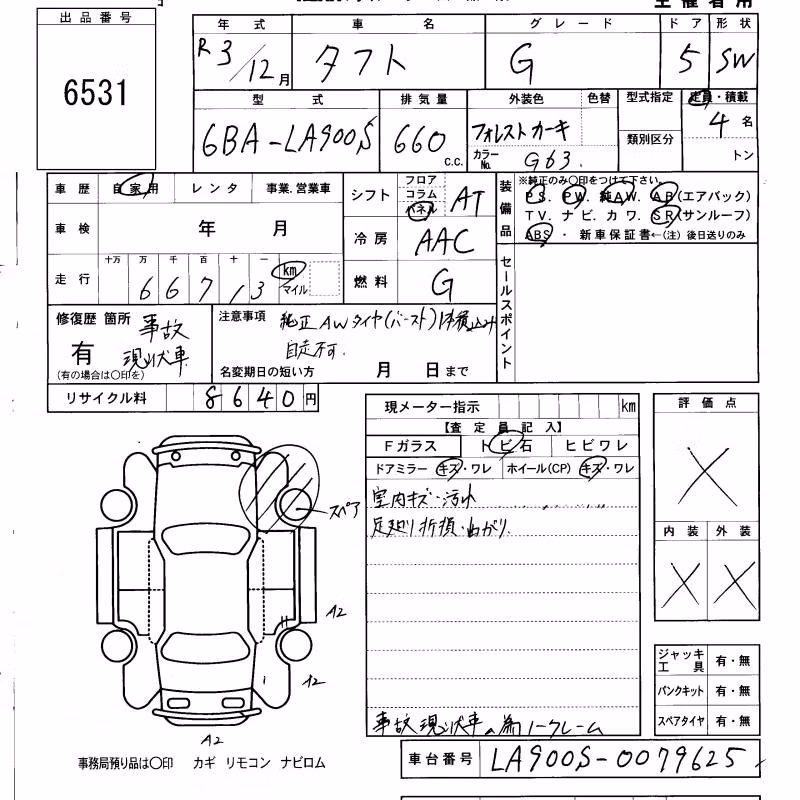 出品番号
6531
年式 車名 グレード ドア 形状
R3/12月 タフト G 5 SW
型式 排気量 外装色 色替 型式指定 定員・積載
6BA-LA900S 660 c.c. フォレストカーキ 4名
カラーNo. G63. 類別区分 トン
車歴 自家用 レンタ 事業.営業車
車検 年 月
走行 十万 万 千 百 十 一 km マイル
6 6 7 1 3
シフト フロア コラム パネル AT
冷房 AAC
燃料 G
装備品 ※純正のみ○印をつけて下さい。
PS. PW. 純AW. AB(エアバック)
TV. ナビ. カワ. SR(サンルーフ)
ABS ・ 新車保証書←(注) 後日送りのみ
セールスポイント
修復歴 箇所 事故
有 現状車
(有の場合は○印を)
注意事項 純正AWタイヤ(バースト)1本積込み
自走不可.
名変期日の短い方 月 日まで
リサイクル料 8640円
現メーター指示 km
【査定員記入】
Fガラス トビ石 ヒビワレ
ドアミラー キズ・ワレ ホイール(CP) キズ・ワレ
室内キズ・汚れ
足廻り折損・曲がり.
事故現状車の為ノークレーム
評価点
X
内装 外装
X X
スペア
A2
A2
A2
ジャッキ工具 有・無
パンクキット 有・無
スペアタイヤ 有・無
事務局預り品は○印 カギ リモコン ナビロム
車台番号 LA900S-0079625